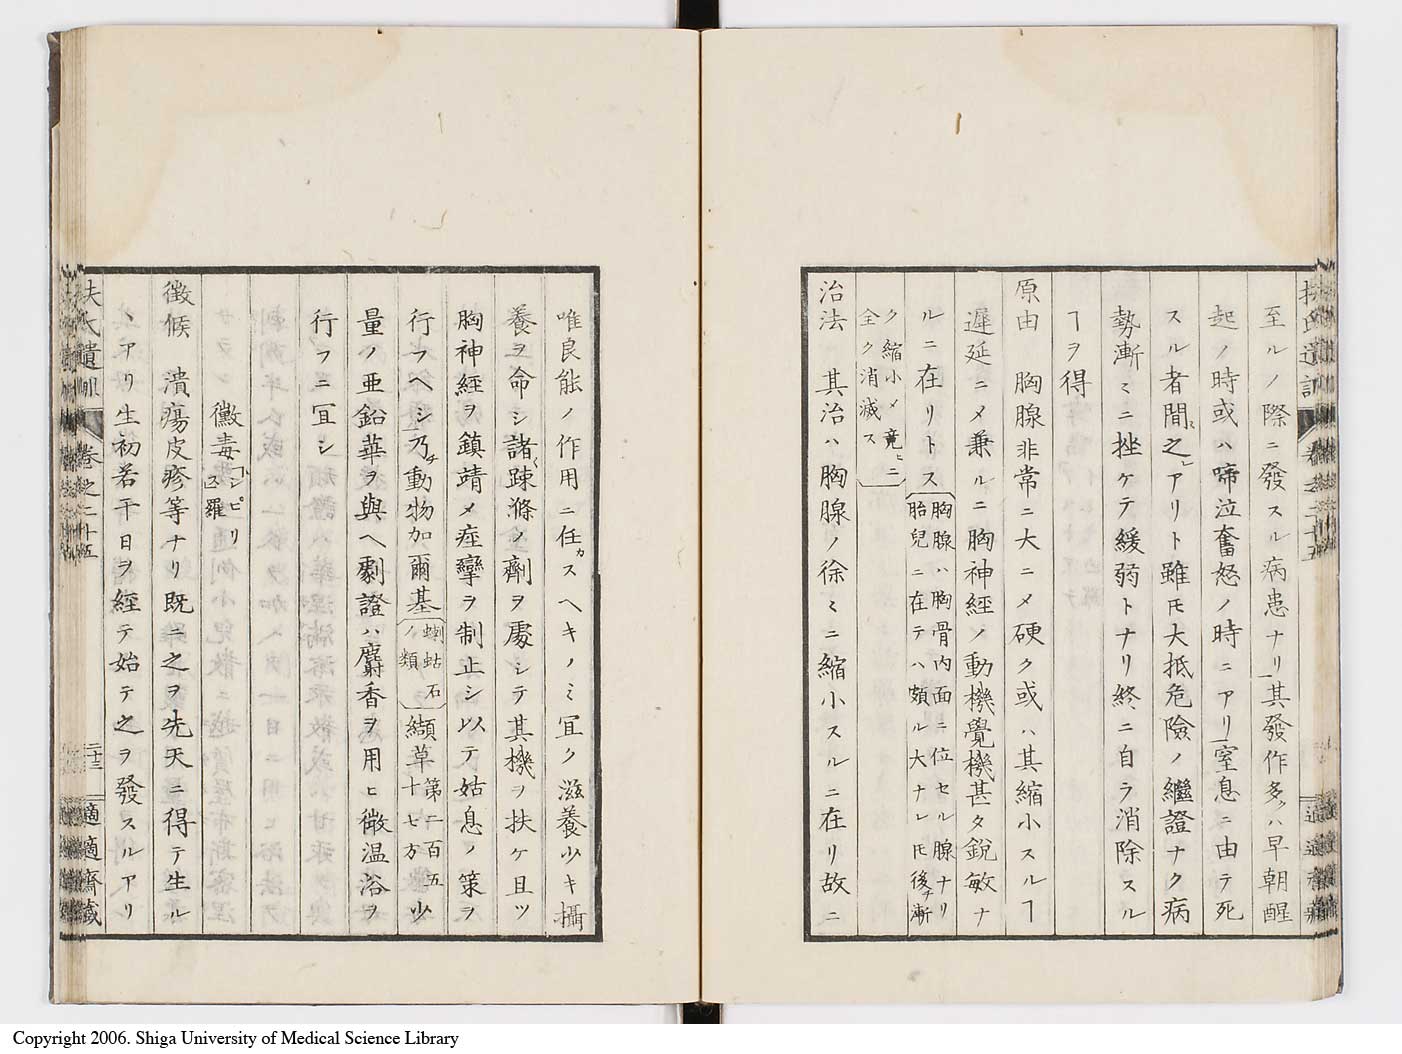 至ルノ際ニ發スル病患ナリ其發作多クハ早朝醒
起ノ時或ハ啼泣奮怒ノ時ニアリ窒息ニ由テ死
スル者間之アリト雖モ大抵危險ノ繼證ナク病
勢漸ミニ挫ケテ緩弱トナリ終ニ自ラ消除スル
ヿヲ得
原由　胸腺非常ニ大ニメ硬ク或ハ其縮小スルヿ
遲延ニメ兼ルニ胸神経ノ動機覺機甚タ銳敏ナ
ルニ在リトス
胸腺ハ胸骨内面ニ位セル腺ナリ
胎兒ニ在テハ頗ル大ナレモ後チ漸
ク縮小メ竟ニ
全ク消滅ス
治法　其治ハ胸腺ノ徐ミニ縮小スルニ在リ故ニ
扶氏遺訓　卷之二十五
唯良能ノ作用ニ任カスヘキノミ宜ク滋養少キ攝
養ヲ命シ諸疎滌ノ劑ヲ處シテ其機ヲ扶ケ且ツ
胸神経ヲ鎮靖メ痙攣ヲ制止シ以テ姑息ノ策ヲ
行フヘシ乃チ動物加爾基
蝲蛄石
ノ類
纈草
第二百五
十七方
少
量ノ亜鉛華ヲ與ヘ劇證ハ麝香ヲ用ヒ微温浴ヲ
行フニ冝シ
黴毒
シピリス羅
徴候　潰瘍皮疹等ナリ既ニ之ヲ先天ニ得テ生ル
ヽアリ生初若干日ヲ經テ始テ之ヲ發スルアリ
扶氏遺訓　卷之二十五　二十三　適適齋藏
Copyright 2006. Shiga University of Medical Science Library